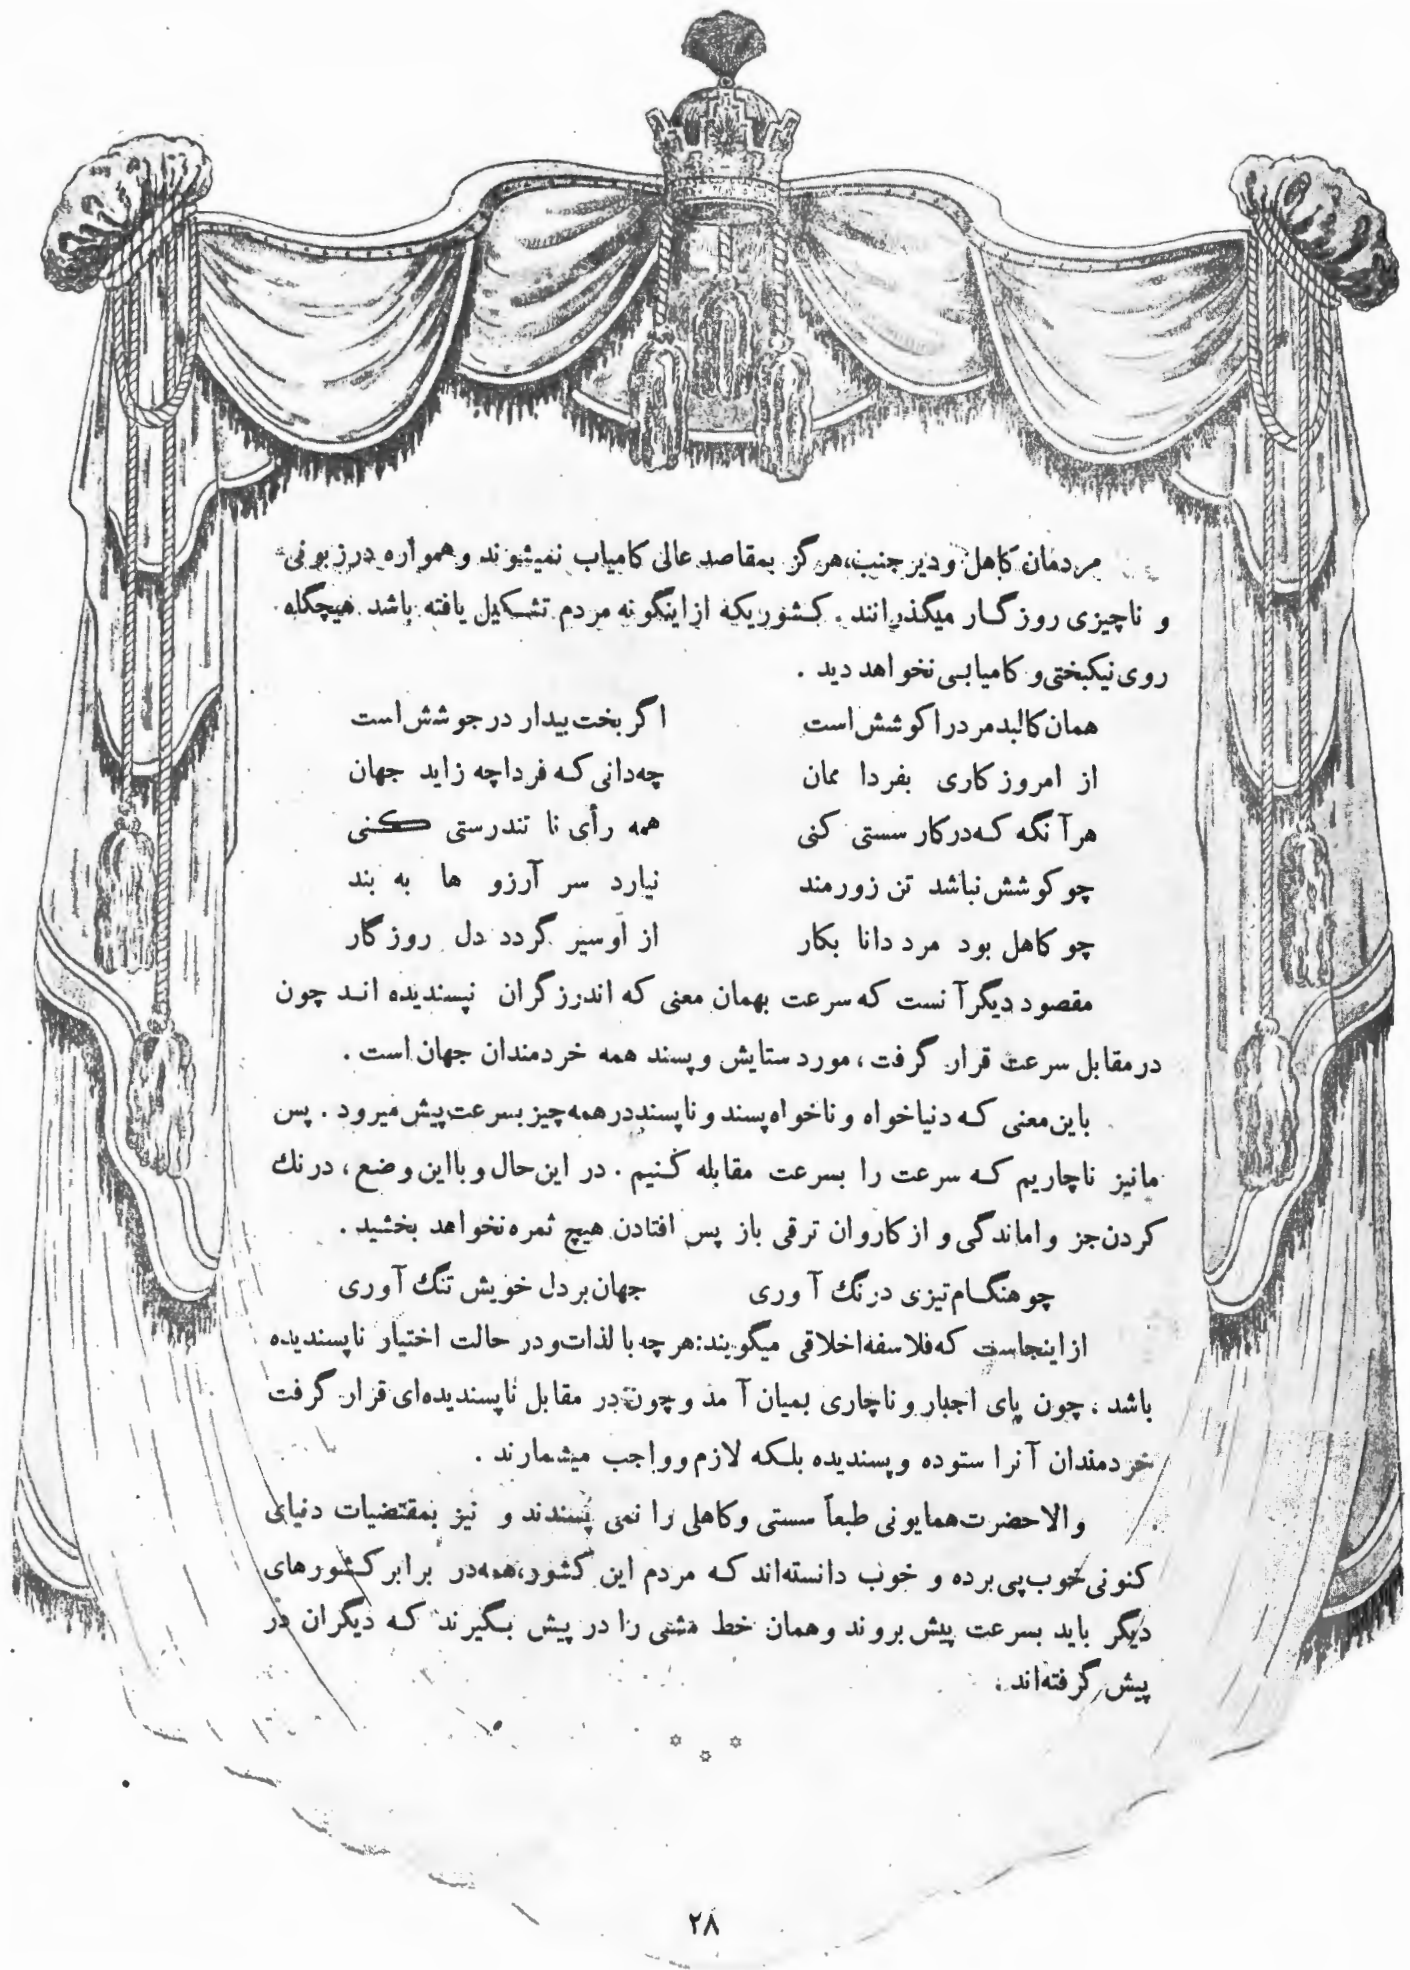 مردمان کاهل و دیر جنب، هرگز بمقاصد عالی کامیاب نمیشوند و همواره در زبونی
و ناچیزی روزگار میگذرانند . کشوریکه از اینگونه مردم تشکیل یافته باشد هیچگاه
روی نیکبختی و کامیابی نخواهد دید .
همان کالبد مرد را کوشش است اگر بخت بیدار در جوشش است
از امروز کاری بفردا ممان چه دانی که فردا چه زاید جهان
هرآنگه که در کار سستی کنی همه رأی نا تندرستی کنی
چو کوشش نباشد تن زورمند نیارد سر آرزو ها به بند
چو کاهل بود مرد دانا بکار از او سیر گردد دل روزگار
مقصود دیگر آنست که سرعت بهمان معنی که اندرزگران نپسندیده اند چون
در مقابل سرعت قرار گرفت ، مورد ستایش و پسند همه خردمندان جهان است .
باین معنی که دنیا خواه و ناخواه پسند و ناپسند در همه چیز بسرعت پیش میرود . پس
ما نیز ناچاریم که سرعت را بسرعت مقابله کنیم . در این حال و با این وضع ، درنك
کردن جز واماندگی و از کاروان ترقی باز پس افتادن هیچ ثمره نخواهد بخشید .
چو هنگام تیزی درنك آوری جهان بر دل خویش تنگ آوری
از اینجاست که فلاسفه اخلاقی میگویند : هر چه بالذات و در حالت اختیار ناپسندیده
باشد ، چون پای اجبار و ناچاری بمیان آمد و چون در مقابل ناپسندیده‌ای قرار گرفت
خردمندان آنرا ستوده و پسندیده بلکه لازم و واجب میشمارند .
والاحضرت همایونی طبعاً سستی و کاهلی را نمی پسندند و نیز بمقتضیات دنیای
کنونی خوب پی برده و خوب دانسته‌اند که مردم این کشور ، همه در برابر کشورهای
دیگر باید بسرعت پیش بروند و همان خط مشی را در پیش بگیرند که دیگران در
پیش گرفته‌اند .
۲۸